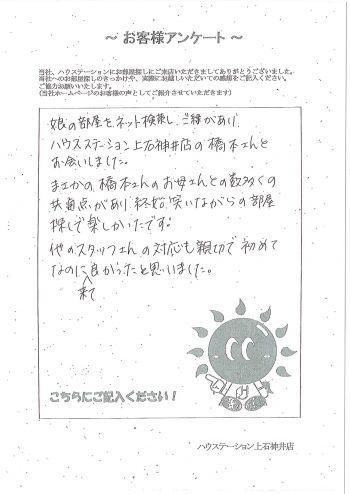 ～ お客様アンケート ～
当社、ハウスステーションにお部屋探しにご来店いただきましてありがとうございました。
当社へのお部屋探しのきっかけや、実際にお越しいただいての感想をご記入ください。
ご協力お願いいたします。
(当社ホームページのお客様の声としてご紹介させていただきます)
娘の部屋をネット検索し、ご縁があり
ハウスステーション上石神井店の橋本さんと
お会いしました。
まさかの橋本さんのお母さんとの数多くの
共通点があり終始笑いながらの部屋
探しで楽しかったです。
他のスタッフさんの対応も親切で初めて
なのに来て良かったと思いました。
こちらにご記入ください！
ハウスステーション上石神井店